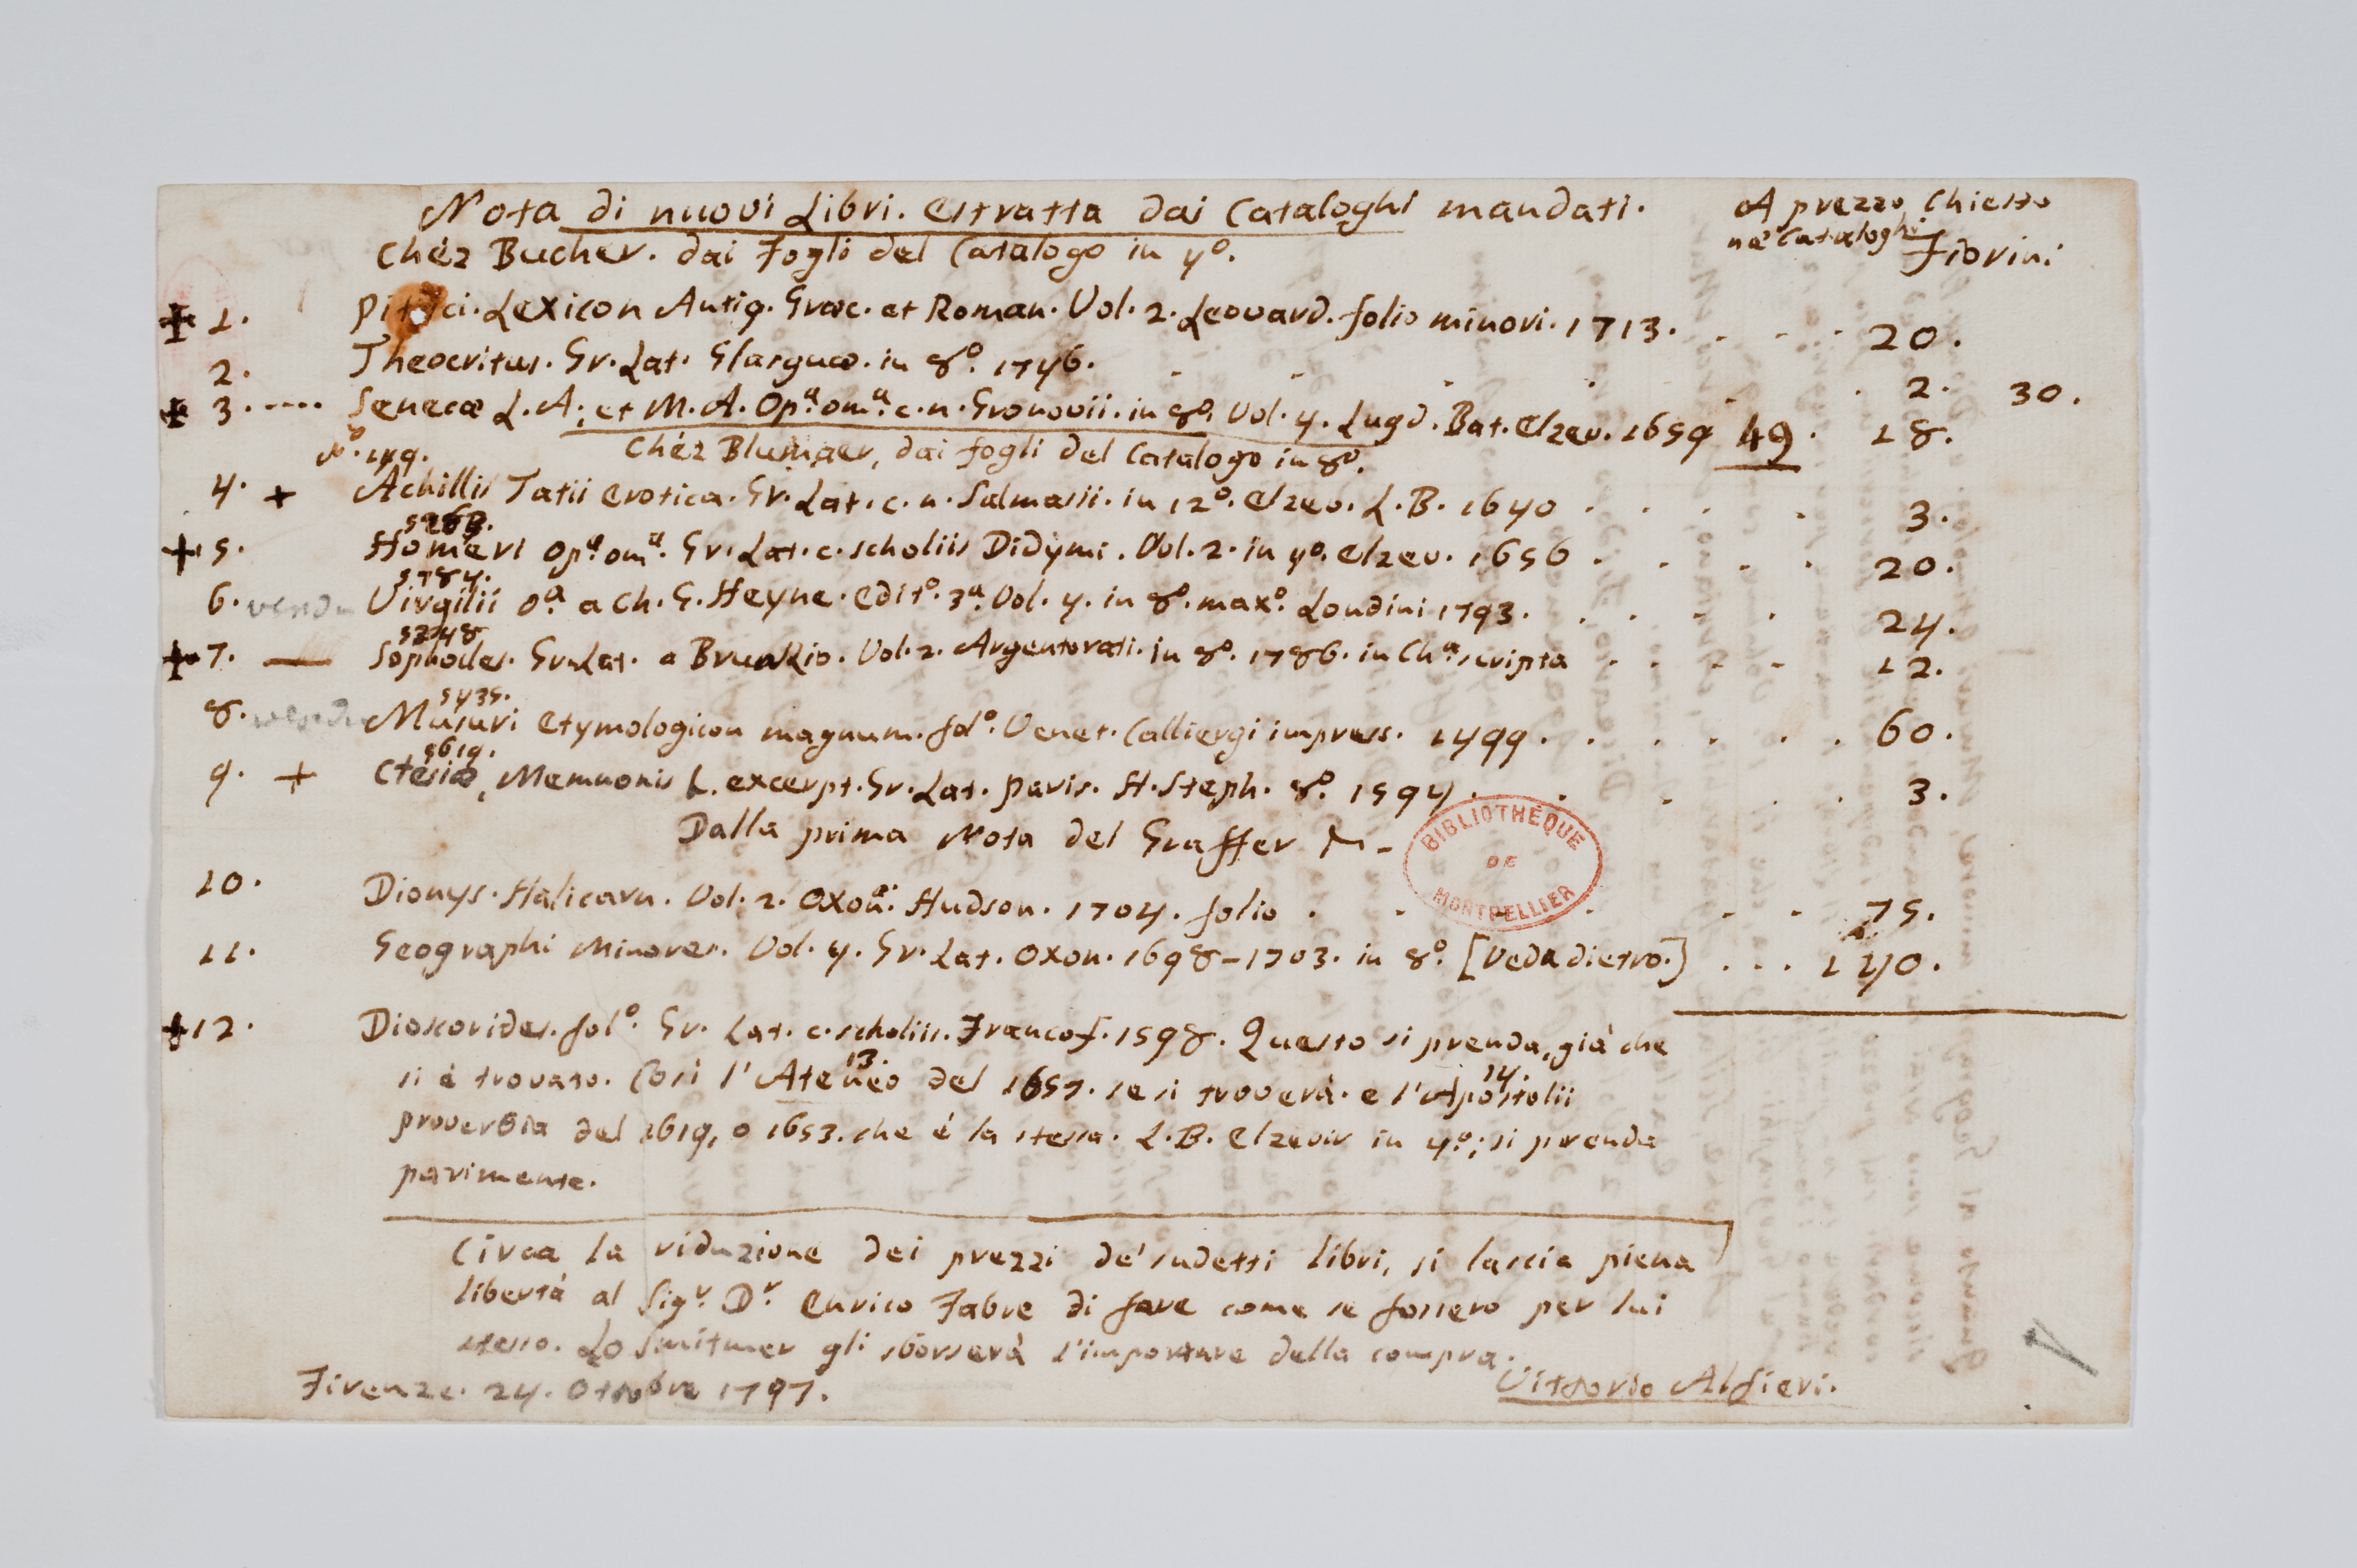 Nota di nuovi Libri. Estratta dai Cataloghi mandati.
A prezzo chiesto
ne' Cataloghi
Fiorini
Chéz Bucher. dai Fogli del Catalogo in 4º.
1. Pitisci. Lexicon Antiq. Græc. et Roman. Vol. 2. Leovard. folio minori. 1713. . . . 20.
2. Theocritus. Gr. Lat. Glasguæ. in 8º. 1746. . . . . . . 2. 30.
3. ---- Senecæ L. A. et M. A. Opª. omª. c. n. Gronovii. in 8º. Vol. 4. Lugd. Bat. Elzev. 1659 49. 18.
Chéz Blumaer, dai fogli del Catalogo in 8º.
Nº. 149.
4. + Achillis Tatii Erotica. Gr. Lat. c. n. Salmasii. in 12º. Elzev. L. B. 1640 . . . . 3.
+ 5. Homeri Opª. omª. Gr. Lat. c. scholiis Didymi. Vol. 2. in 4º. Elzev. 1656 . . . . 20.
5784.
6. vendu Virgilii Oª. a Ch. G. Heyne. Editº. 3ª. Vol. 4. in 8º. maxº. Londini 1793. . . . . 24.
5248
+ 7. — Sophocles. Gr. Lat. a Brunkio. Vol. 2. Argentorati. in 8º. 1786. in Chª. scripta . . . . 12.
5435.
8. vendu Musuri Etymologicon magnum. folº. Venet. Calliergi impress. 1499. . . . . . . 60.
5619.
9. + Ctesiæ, Memnonis &. excerpt. Gr. Lat. Paris. H. Steph. 8º. 1594. . . . . 3.
Dalla prima Nota del Graffer
10. Dionys. Halicarn. Vol. 2. Oxon. Hudson. 1704. folio . . . . . 75.
11. Geographi Minores. Vol. 4. Gr. Lat. Oxon. 1698-1703. in 8º. [Veda dietro.] . . .
+ 12. Dioscorides. folº. Gr. Lat. c. scholiis. Francof. 1598. Questo si prenda, già che
13. 14.
si è trovato. Così l'Ateneo del 1657. se si troverà. e l'Apostolii
proverbia del 1619, o 1653. che è la stessa. L. B. Elzevir in 4º.; si prenda
parimente.
Circa la riduzione dei prezzi de' sudetti libri, si lascia piena
libertà al Sigr. Dr. Enrico Fabre di fare come se fossero per lui
stesso. Lo Smitmer gli sborserà l'importare della compra.
Firenze. 24. Ottobre 1797.
Vittorio Alfieri.
BIBLIOTHÈQUE
DE
MONTPELLIER